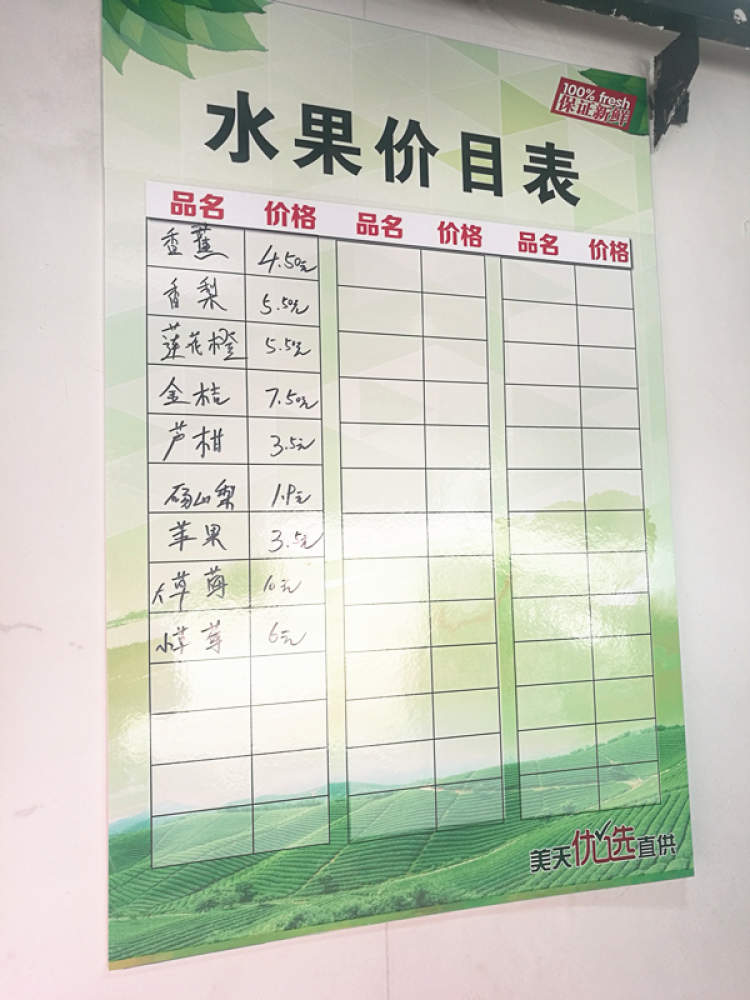 100% fresh
保证新鲜
水果价目表
品名 价格 品名 价格 品名 价格
香蕉 4.50元
香梨 5.50元
莲花橙 5.50元
金桔 7.50元
芦柑 3.5元
砀山梨 1.9元
苹果 3.5元
大草莓 10元
小草莓 6元
美天优选直供